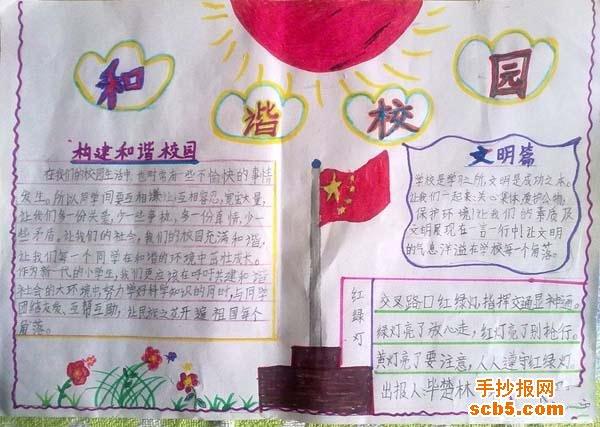 和
谐
校
园
构建和谐校园
在我们的校园生活中,也时常有一些不愉快的事情
发生。所以同学间要互相谦让互相容忍,宽宏大量,
让我们多一份关爱,少一些争执,多一份真情,少一
些矛盾。让我们的社会,我们的校园充满和谐,
让我们每一个同学在和谐的环境中茁壮成长。
作为新一代的小学生,我们更应该在呼吁共建和谐
社会的大环境中努力学好科学知识的同时,与同学
团结友爱、互帮互助,让民族之花开遍祖国每个
角落。
文明篇
学校是学习之所,文明是成功之本。
让我们一起来:关心集体,爱护公物,
保护环境!让我们的素质及
文明展现在一言一行中!让文明
的气息洋溢在学校每一个角落。
红绿灯
交叉路口红绿灯,指挥交通显神通。
绿灯亮了放心走,红灯亮了别抢行。
黄灯亮了要注意,人人遵守红绿灯
出报人毕楚林
手抄报网
scb5.com